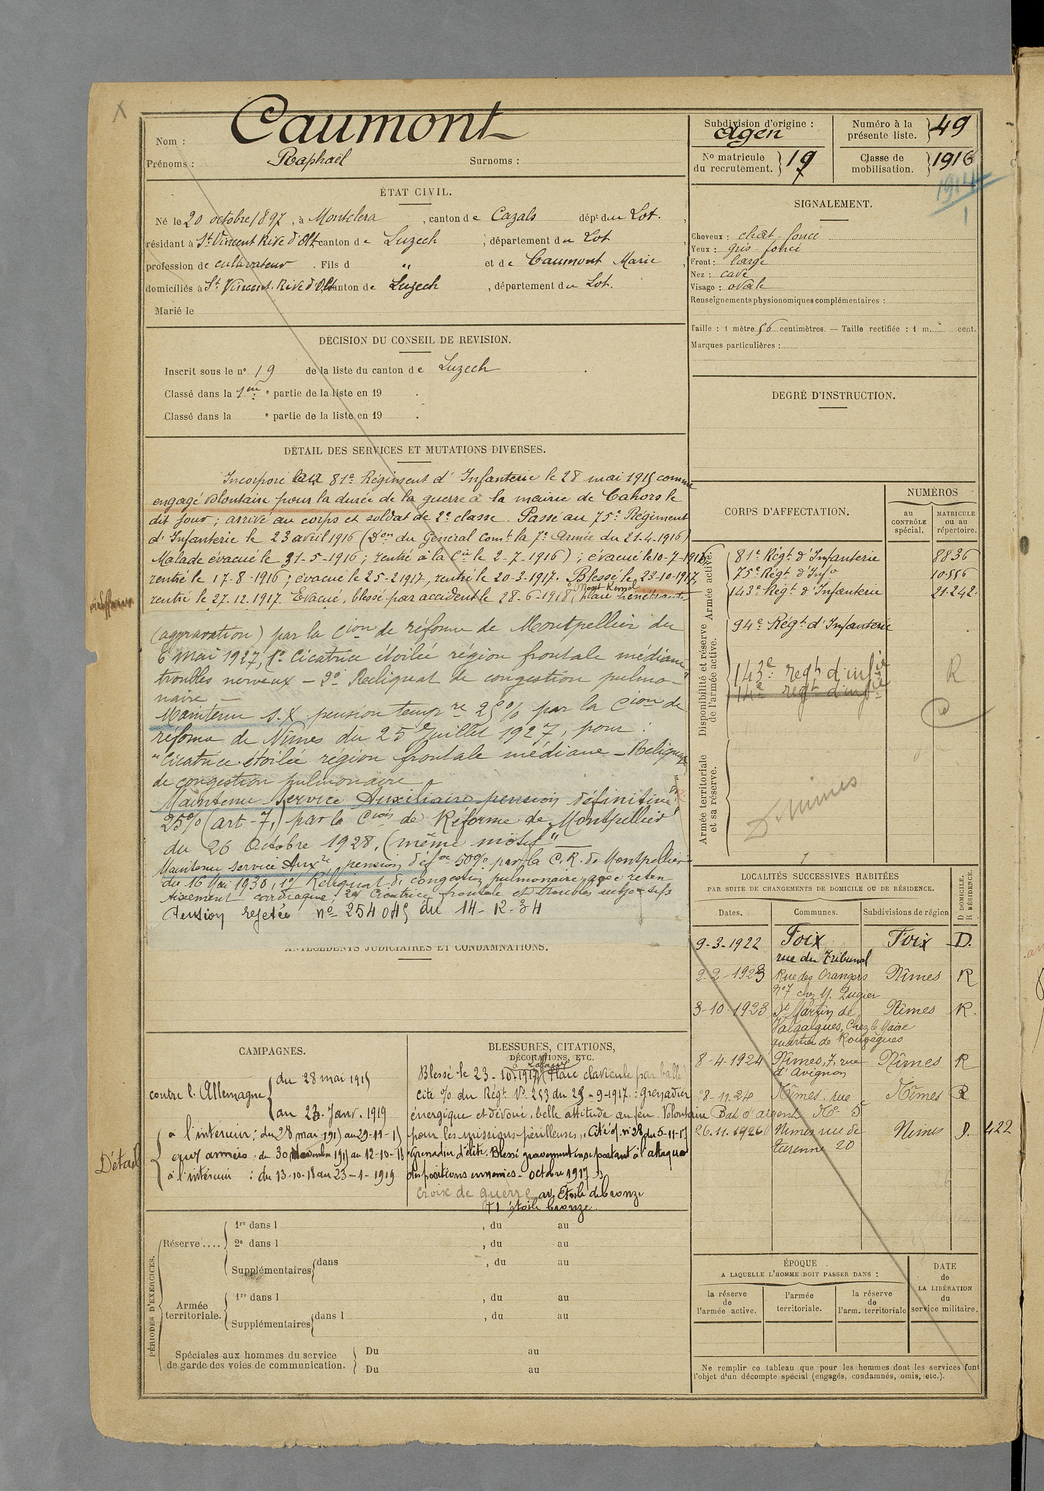 Nom : Caumont
Prénoms : Raphaël Surnoms :
Subdivision d'origine : Agen
Numéro à la présente liste. 49
No matricule du recrutement. 19
Classe de mobilisation. 1916
1914
ÉTAT CIVIL.
Né le 20 octobre 1897, à Montclera, canton de Cazals dépt du Lot.
résidant à St Vincent Rive d'Olt canton de Luzech, département du Lot
profession de cultivateur. Fils d " et de Caumont Marie
domiciliés à St Vincent-Rive d'Olt canton de Luzech, département du Lot.
Marié le
SIGNALEMENT.
Cheveux : chât. foncé
Yeux : gris foncé
Front : large
Nez : cave
Visage : ovale
Renseignements physionomiques complémentaires :
Taille : 1 mètre 56 centimètres. — Taille rectifiée : 1 m. cent.
Marques particulières :
DÉCISION DU CONSEIL DE REVISION.
Inscrit sous le no 19 de la liste du canton de Luzech
Classé dans la 1ere partie de la liste en 19 .
Classé dans la e partie de la liste en 19 .
DEGRÉ D'INSTRUCTION.
DÉTAIL DES SERVICES ET MUTATIONS DIVERSES.
Incorporé au 81e Régiment d'Infanterie le 28 mai 1915 comme
engagé volontaire pour la durée de la guerre à la mairie de Cahors le
dit jour ; arrivé au corps et soldat de 2e classe. Passé au 75e Régiment
d'Infanterie le 23 avril 1916 (Don du Général Comt la 7e Armée du 21-4-1916)
Malade évacué le 31-5-1916 ; rentré à la Cie le 2-7-1916) ; évacué le 10-7-1916,
rentré le 17-8-1916 ; évacué le 25-2-1917, rentré le 20-3-1917. Blessé le 23-10-1917,
rentré le 27.12.1917. Evacué, blessé par accident le 28-6-1918, plaie pénétrante
(aggravation) par la Cion de réforme de Montpellier du
6 mai 1927, 1o Cicatrice étoilée région frontale médiane
troubles nerveux — 2o Reliquat de congestion pulmo-
naire —
Maintenu S.X pension tempre 25 % par la Cion de
réforme de Nîmes du 25 Juillet 1927, pour
"Cicatrice étoilée région frontale médiane — Reliquat
de congestion pulmonaire"
Maintenu Service Auxiliaire pension définitive
25% (art. 7,) par la Cion de Réforme de Montpellier
du 26 Octobre 1928, (même motif"
Maintenu Service Auxre pension défve 50% par la C.R. de Montpellier
du 16 Mai 1930, 1o/ Reliquat de congestion pulmonaire avec reten-
tissement cardiaque ; 2o/ Cicatrice frontale et troubles subjectifs
Pension rejetée no 254045 du 14-12-34
ANTÉCÉDENTS JUDICIAIRES ET CONDAMNATIONS.
CORPS D'AFFECTATION.
NUMÉROS
au CONTRÔLE spécial.
MATRICULE ou au répertoire.
Armée active.
81e Régt d'Infanterie 8836
75e Régt d'Infie 10.556
143e Régt d'Infanterie 21.242
Disponibilité et réserve de l'armée active.
94e Régt d'Infanterie
143e regt d'infie
142e regt d'infie
R
Armée territoriale et sa réserve.
D Nimes
LOCALITÉS SUCCESSIVES HABITÉES
PAR SUITE DE CHANGEMENTS DE DOMICILE OU DE RÉSIDENCE.
Dates. Communes. Subdivisions de région D DOMICILE. R RÉSIDENCE.
9-3-1922 Foix rue du Tribunal Foix D.
2-2-1923 Rue des Orangers no 7 chez M. Nîmes R
3-10-1923 St Martin de Valgalgues, Chez le Maire quartier de Nîmes R.
8-4-1924 Nîmes, 7, rue d'Avignon Nîmes R
8-11-24 Nîmes. rue Bat d'argent No 5 Nîmes R
26.11.1926 Nimes rue de turenne 20 Nimes D. 422
CAMPAGNES.
contre l'Allemagne du 28 mai 1915
au 23 Janv. 1919
Détail
à l'intérieur : du 28 mai 1915 au 29-11-15
aux armées : du 30 Novembre 1915 au 12-10-18
à l'intérieur : du 13-10-18 au 23-1-1919
BLESSURES, CITATIONS,
DÉCORATIONS, ETC.
Blessé le 23-10-1917, Plaie clavicule par balle
Cité % du Régt No 253 du 25-9-1917 : grenadier
énergique et dévoué, belle attitude au feu. Volontaire
pour les missions périlleuses". Cité % no 28 du 5-11-17
"Grenadier d'élite. Blessé gravement en se portant à l'attaque
des positions ennemies - octobre 1917"
Croix de guerre av. Etoile de bronze
+1 étoile bronze.
PÉRIODES D'EXERCICES.
Réserve....
1re dans l , du au
2e dans l , du au
Supplémentaires dans , du au
Armée territoriale.
1re dans l , du au
Supplémentaires dans l , du au
Spéciales aux hommes du service de garde des voies de communication.
Du au
Du au
ÉPOQUE
A LAQUELLE L'HOMME DOIT PASSER DANS :
la réserve de l'armée active.
l'armée territoriale.
la réserve de l'arm. territoriale
DATE de LA LIBÉRATION du service militaire.
Ne remplir ce tableau que pour les hommes dont les services font
l'objet d'un décompte spécial (engagés, condamnés, omis, etc.).